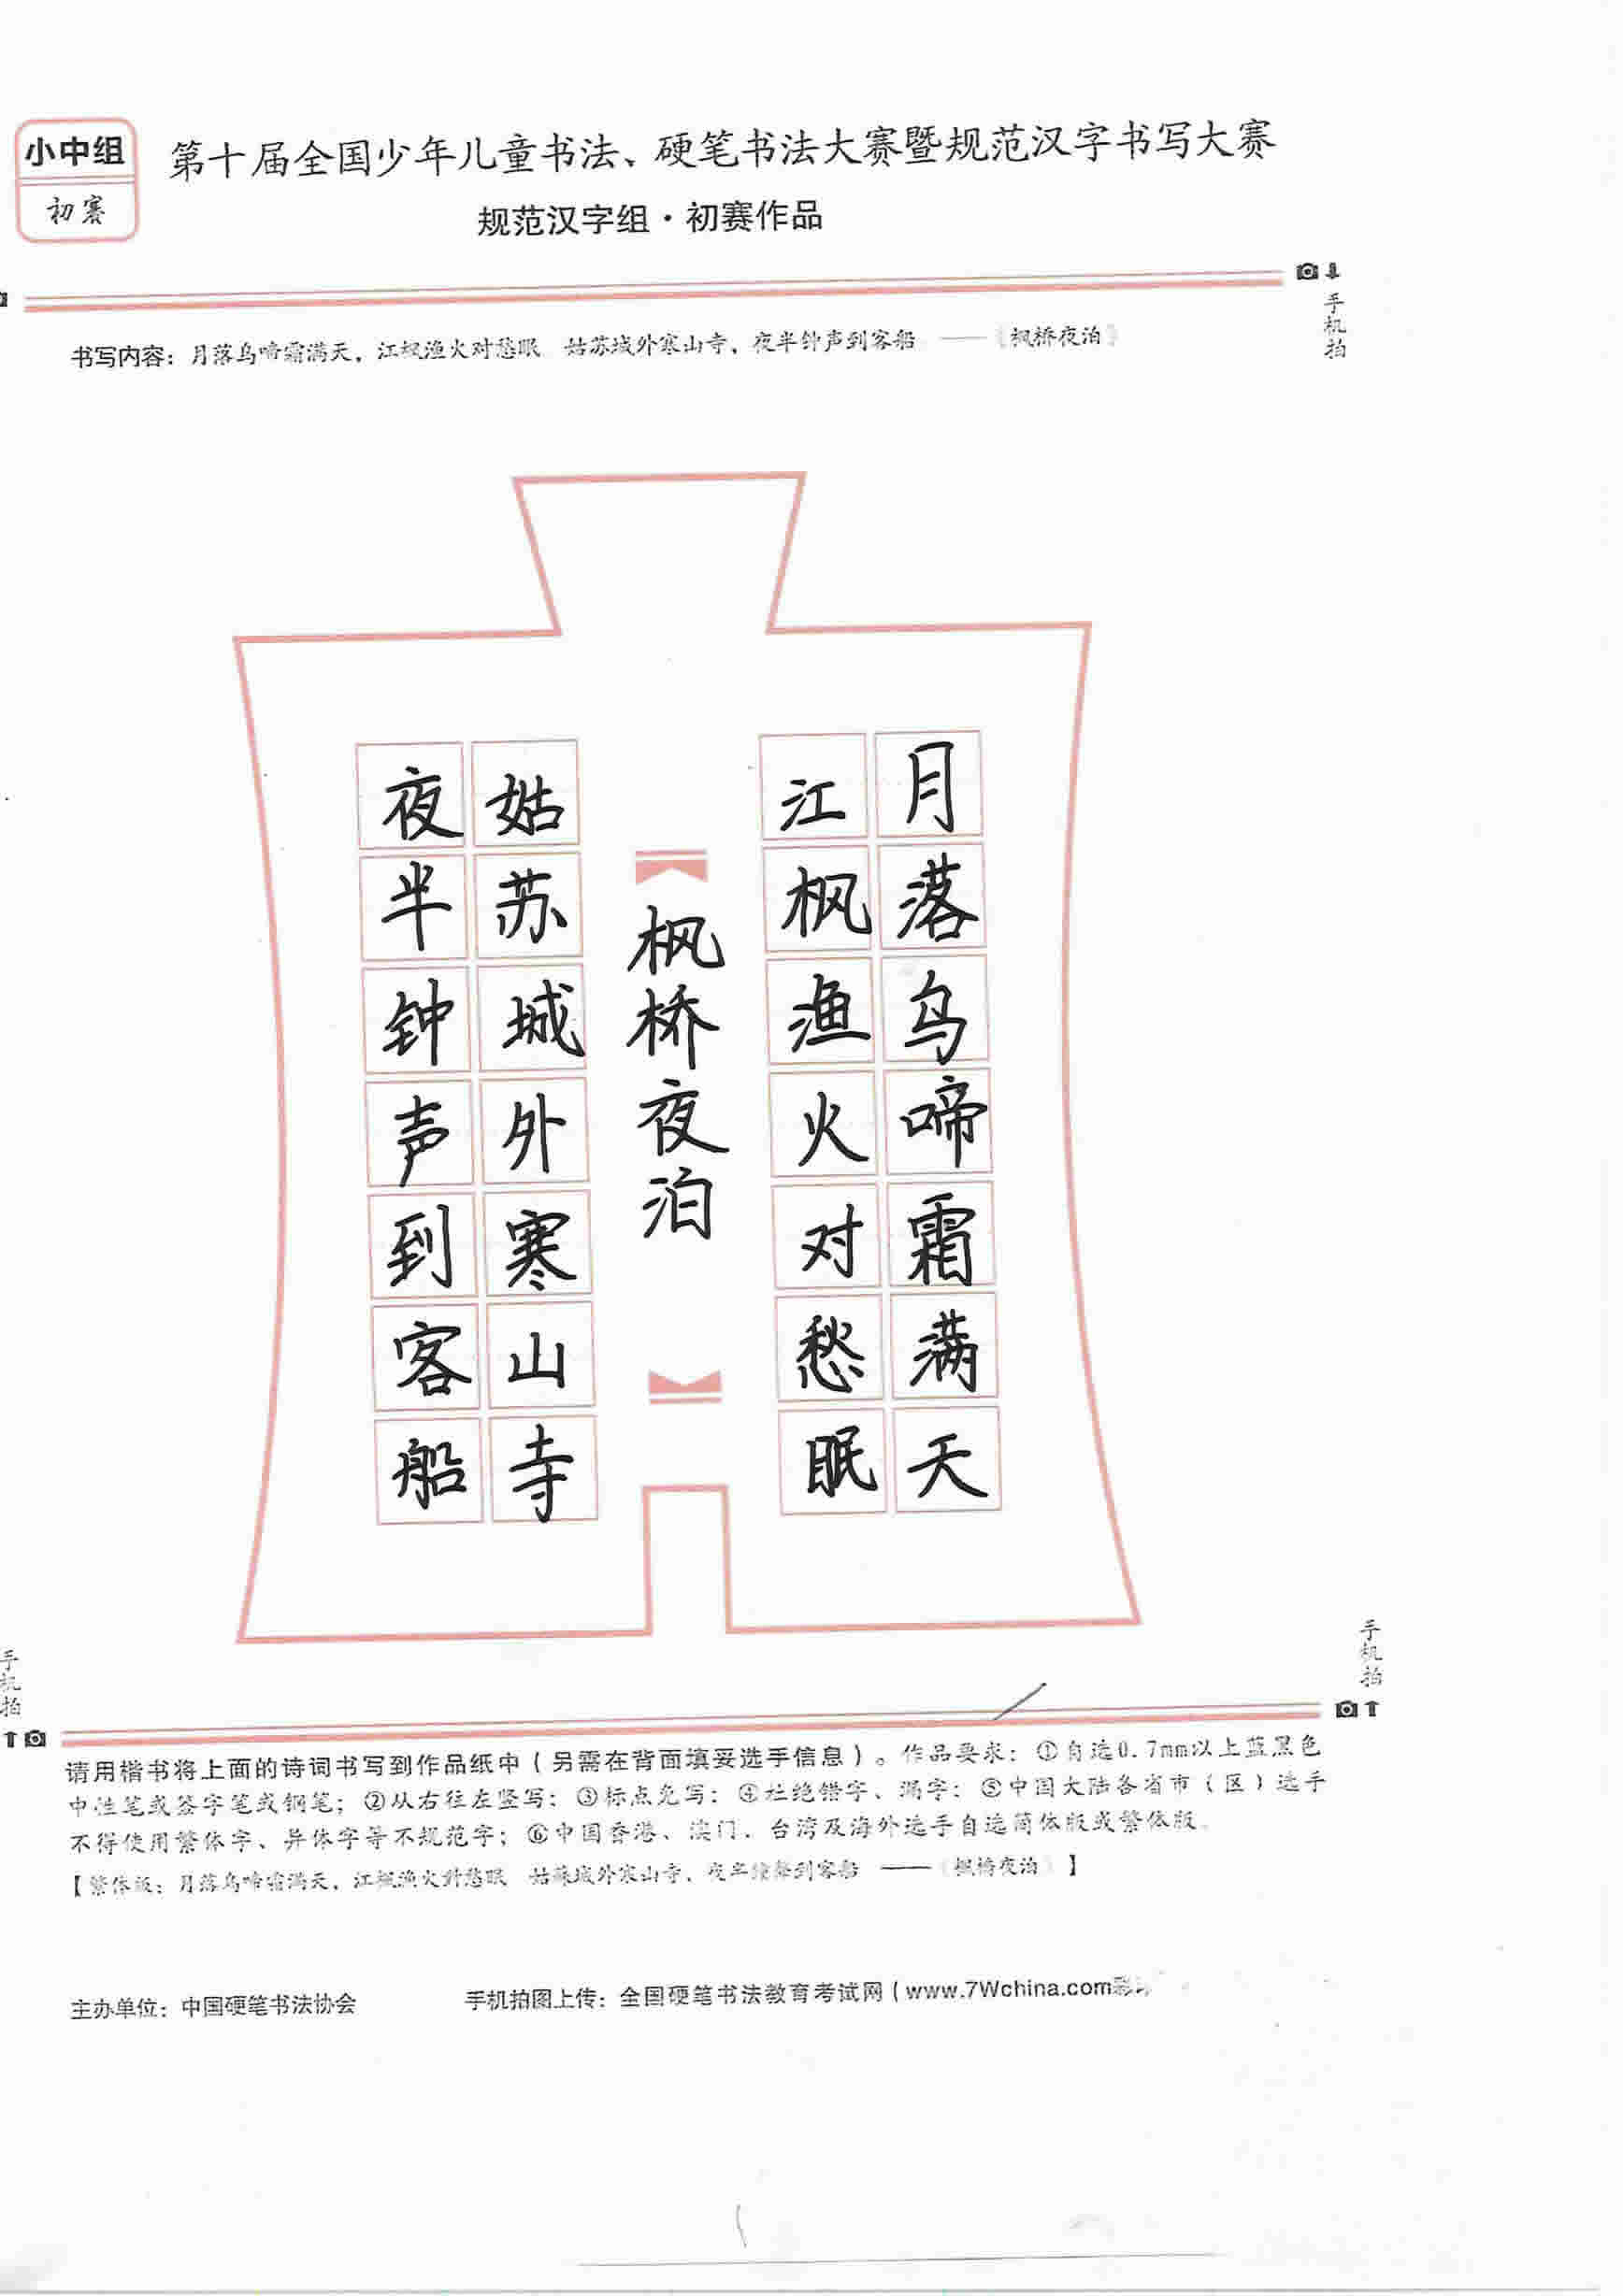 小中组
初赛
第十届全国少年儿童书法、硬笔书法大赛暨规范汉字书写大赛
规范汉字组·初赛作品
手机拍
书写内容：月落乌啼霜满天，江枫渔火对愁眠 姑苏城外寒山寺，夜半钟声到客船 ——《枫桥夜泊》
月落乌啼霜满天
江枫渔火对愁眠
枫桥夜泊
姑苏城外寒山寺
夜半钟声到客船
手机拍
手机拍
请用楷书将上面的诗词书写到作品纸中（另需在背面填妥选手信息）。作品要求：①自选0.7mm以上蓝黑色
中性笔或签字笔或钢笔；②从右往左竖写；③标点免写；④杜绝错字、漏字；⑤中国大陆各省市（区）选手
不得使用繁体字、异体字等不规范字；⑥中国香港、澳门、台湾及海外选手自选简体版或繁体版。
【繁体版：月落乌啼霜满天，江枫渔火對愁眠 姑蘇城外寒山寺，夜半鐘聲到客船 ——《枫橋夜泊》】
主办单位：中国硬笔书法协会
手机拍图上传：全国硬笔书法教育考试网（www.7Wchina.com